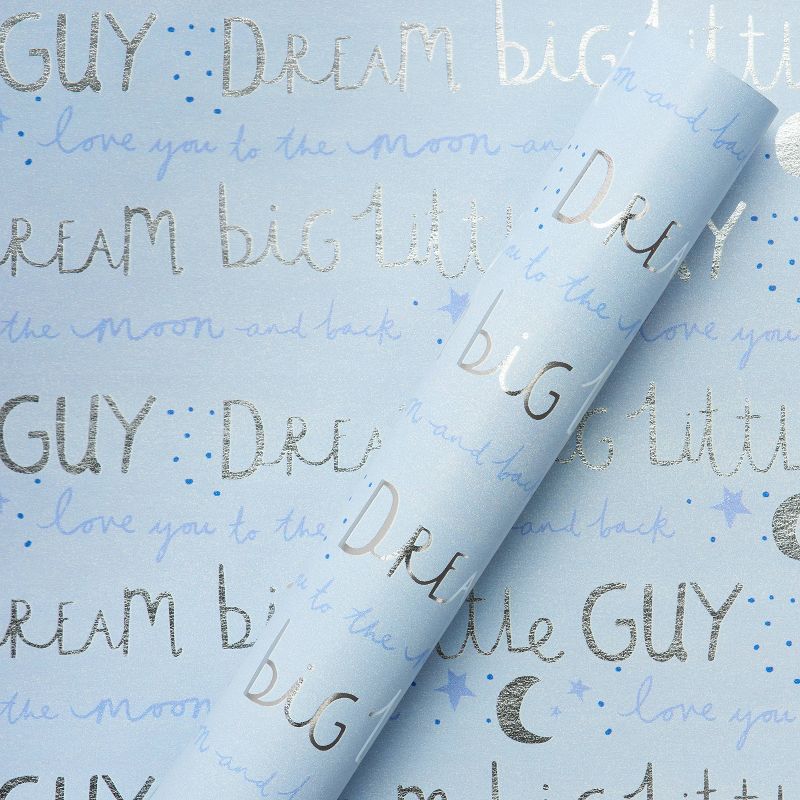 GUY DREAM big littl
love you to the moon an
on and ba
DREAM big litt
DREA
Y
the moon and back
u to the
love you
big
GUY DREA
G little
n and ba
love you to the
and back
DREA
DREAM bi
ttle GUY
u to the
the moon
love you
big
n and ba
GUY
DREAM big little